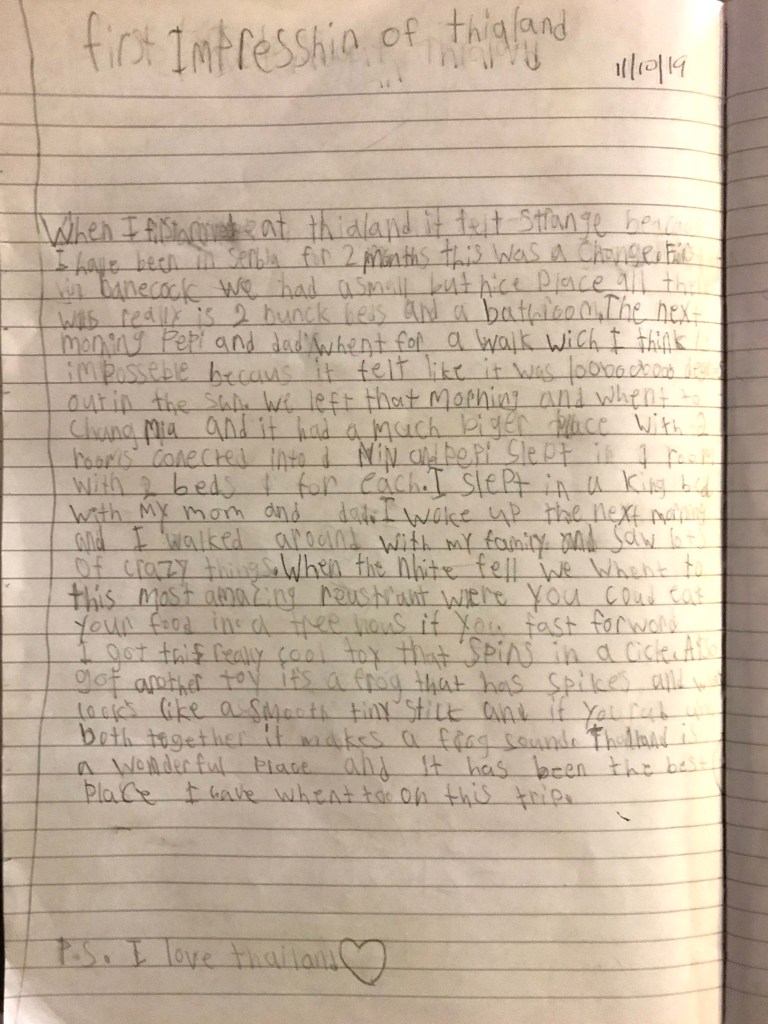 first Impresshin of thialand
11/10/19
When I at thialand it felt strange
I have been in Serbia for 2 months this was a change.
in banecock we had a small but nice place all
was really is 2 bunck beds and a bathroom. The nex
morning Pepi and dad whent for a walk wich I think
imposseble becaus it felt like it was
out in the sun. We left that morning and whent to
Chang Mia and it had a much biger place with 2
rooms conected into NIN and Pepi Slept in 1 room
with 2 beds 1 for each. I slept in a king bed
with my mom and dad. I woke up the next morning
and I walked around with my family and saw lots
of crazy things. When the nhite fell we whent to
this most amazing reustrant were you coud eat
your food in a tree hous if you fast forword
I got this really cool toy that spins in a cicle.
got another toy it's a frog that has spikes and
looks like a smooth tiny stick and if you rub
both together it makes a frog sound. Thailand is
a wonderful place and it has been the best
place I have whent to on this trip.
P.S. I love thailand